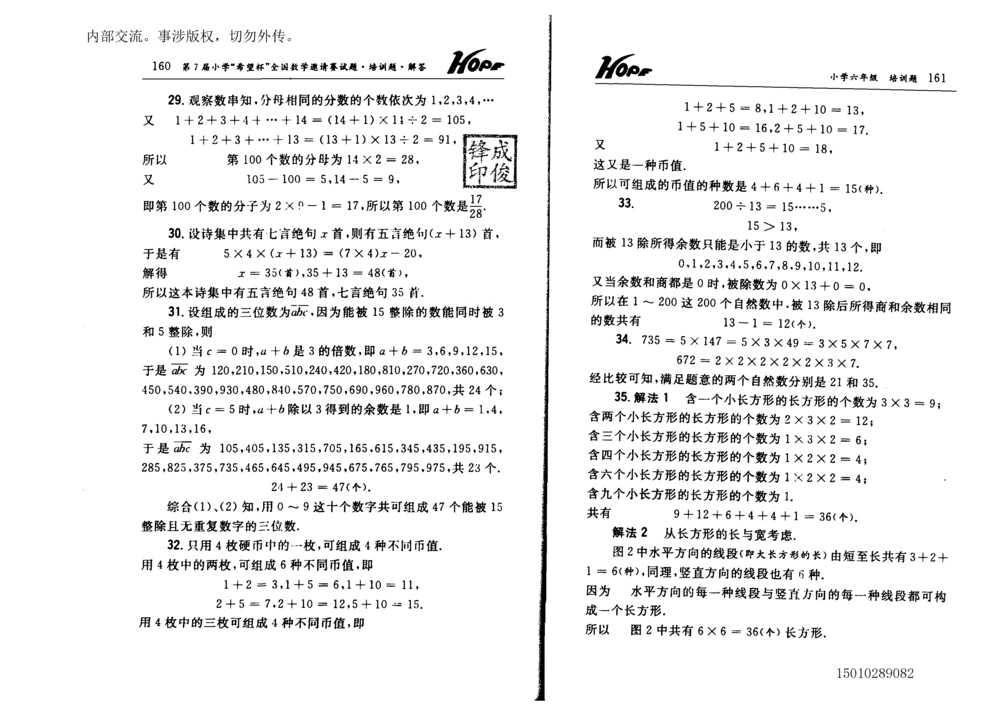 内部交流。事涉版权，切勿外传。
160 第7届小学“希望杯”全国数学邀请赛试题·培训题·解答
HOPE
29. 观察数串知,分母相同的分数的个数依次为1,2,3,4,…
又 1+2+3+4+…+14=(14+1)×14÷2=105,
1+2+3+…+13=(13+1)×13÷2=91,
所以 第100个数的分母为14×2=28,
又 105-100=5,14-5=9,
即第100个数的分子为2×9-1=17,所以第100个数是17/28.
成俊锋印
30. 设诗集中共有七言绝句x首,则有五言绝句(x+13)首,
于是有 5×4×(x+13)=(7×4)x-20,
解得 x=35(首),35+13=48(首),
所以这本诗集中有五言绝句48首,七言绝句35首.
31. 设组成的三位数为abc,因为能被15整除的数能同时被3
和5整除,则
(1)当c=0时,a+b是3的倍数,即a+b=3,6,9,12,15,
于是abc为120,210,150,510,240,420,180,810,270,720,360,630,
450,540,390,930,480,840,570,750,690,960,780,870,共24个;
(2)当c=5时,a+b除以3得到的余数是1,即a+b=1,4,
7,10,13,16,
于是abc为105,405,135,315,705,165,615,345,435,195,915,
285,825,375,735,465,645,495,945,675,765,795,975,共23个.
24+23=47(个).
综合(1)、(2)知,用0～9这十个数字共可组成47个能被15
整除且无重复数字的三位数.
32. 只用4枚硬币中的一枚,可组成4种不同币值.
用4枚中的两枚,可组成6种不同币值,即
1+2=3,1+5=6,1+10=11,
2+5=7,2+10=12,5+10=15.
用4枚中的三枚可组成4种不同币值,即
HOPE
小学六年级 培训题 161
1+2+5=8,1+2+10=13,
1+5+10=16,2+5+10=17.
又 1+2+5+10=18,
这又是一种币值.
所以可组成的币值的种数是4+6+4+1=15(种).
33. 200÷13=15……5,
15>13,
而被13除所得余数只能是小于13的数,共13个,即
0,1,2,3,4,5,6,7,8,9,10,11,12.
又当余数和商都是0时,被除数为0×13+0=0,
所以在1～200这200个自然数中,被13除后所得商和余数相同
的数共有 13-1=12(个).
34. 735=5×147=5×3×49=3×5×7×7,
672=2×2×2×2×2×3×7.
经比较可知,满足题意的两个自然数分别是21和35.
35. 解法1 含一个小长方形的长方形的个数为3×3=9;
含两个小长方形的长方形的个数为2×3×2=12;
含三个小长方形的长方形的个数为1×3×2=6;
含四个小长方形的长方形的个数为1×2×2=4;
含六个小长方形的长方形的个数为1×2×2=4;
含九个小长方形的长方形的个数为1.
共有 9+12+6+4+4+1=36(个).
解法2 从长方形的长与宽考虑.
图2中水平方向的线段(即大长方形的长)由短至长共有3+2+
1=6(种),同理,竖直方向的线段也有6种.
因为 水平方向的每一种线段与竖直方向的每一种线段都可构
成一个长方形.
所以 图2中共有6×6=36(个)长方形.
15010289082